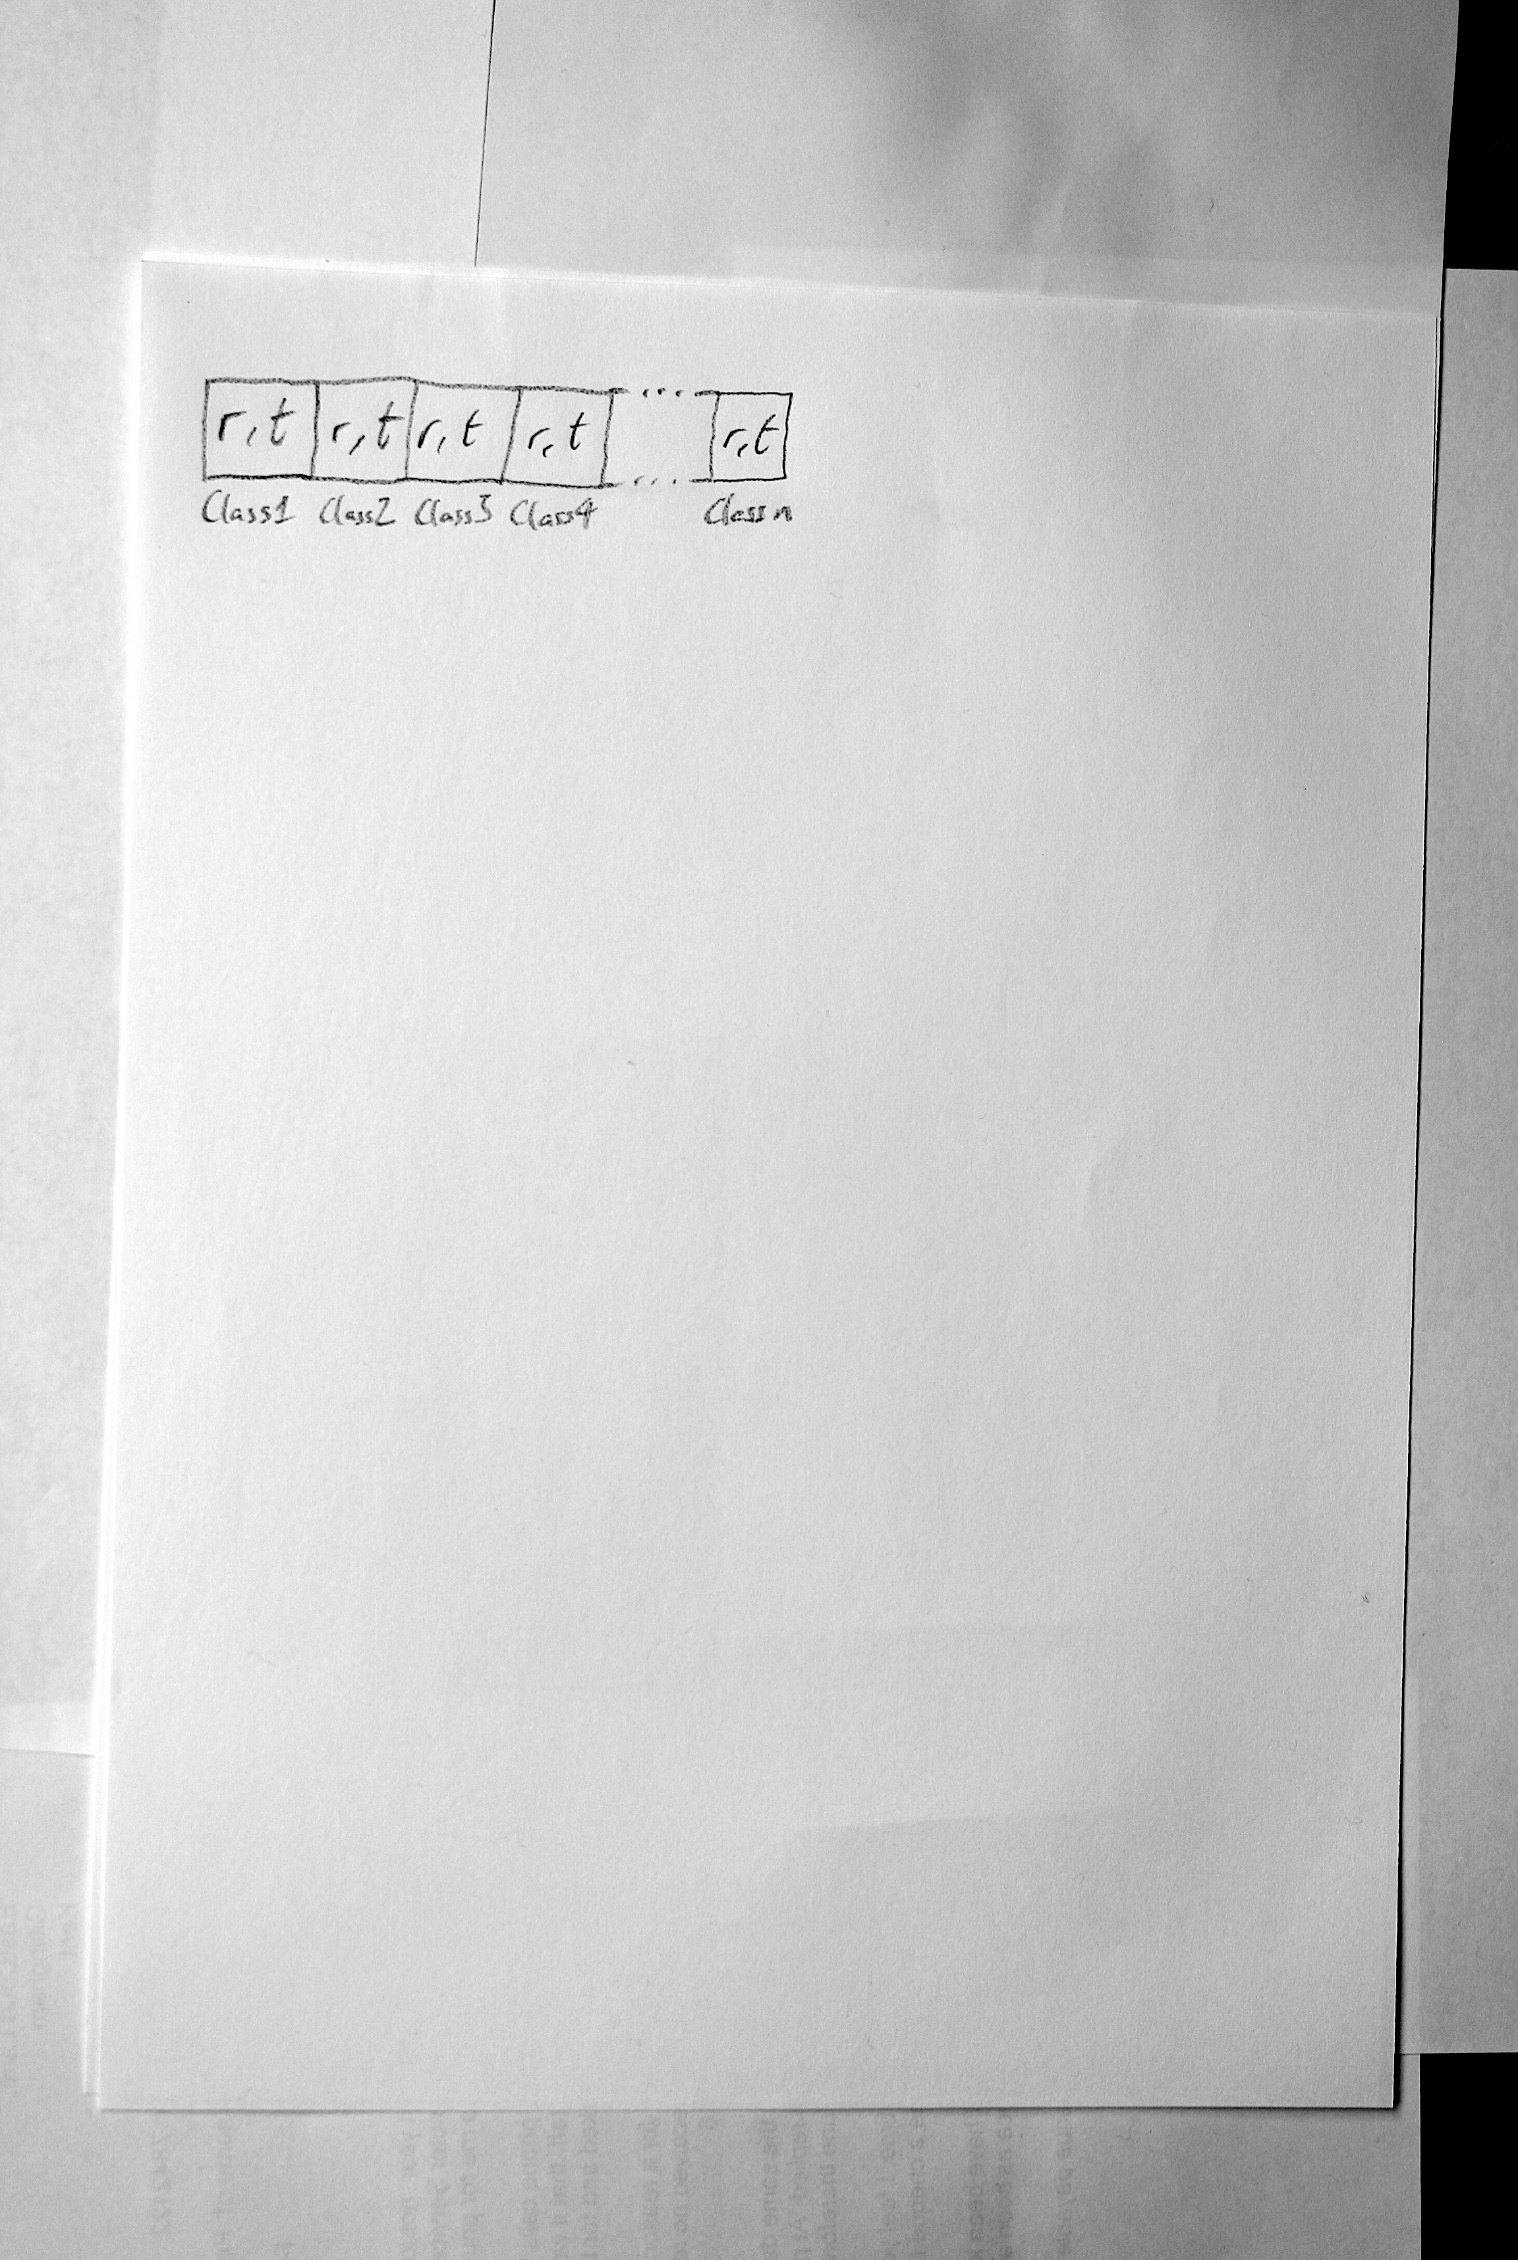 r,t r,t r,t r,t ... r,t
...
Class1 Class2 Class3 Class4 Class n